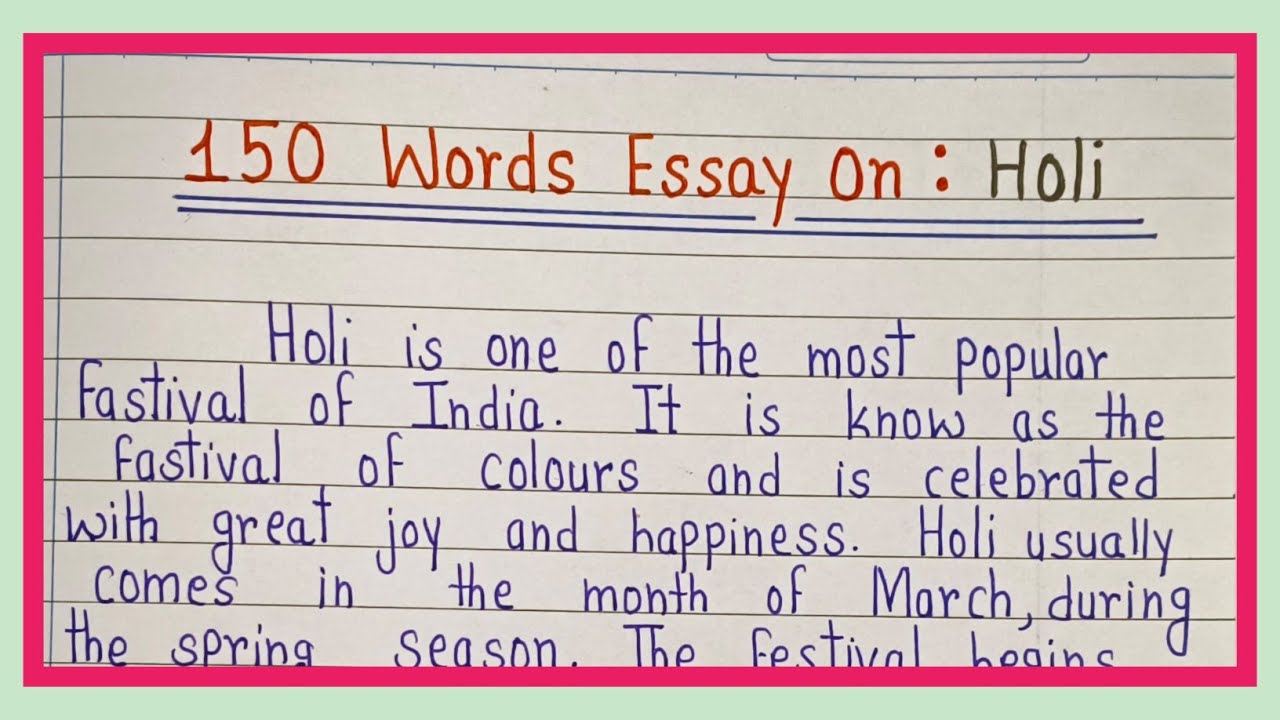 150 Words Essay On : Holi
Holi is one of the most popular
Fastival of India. It is know as the
fastival of colours and is celebrated
with great joy and happiness. Holi usually
comes in the month of March, during
the spring season. The festival begins